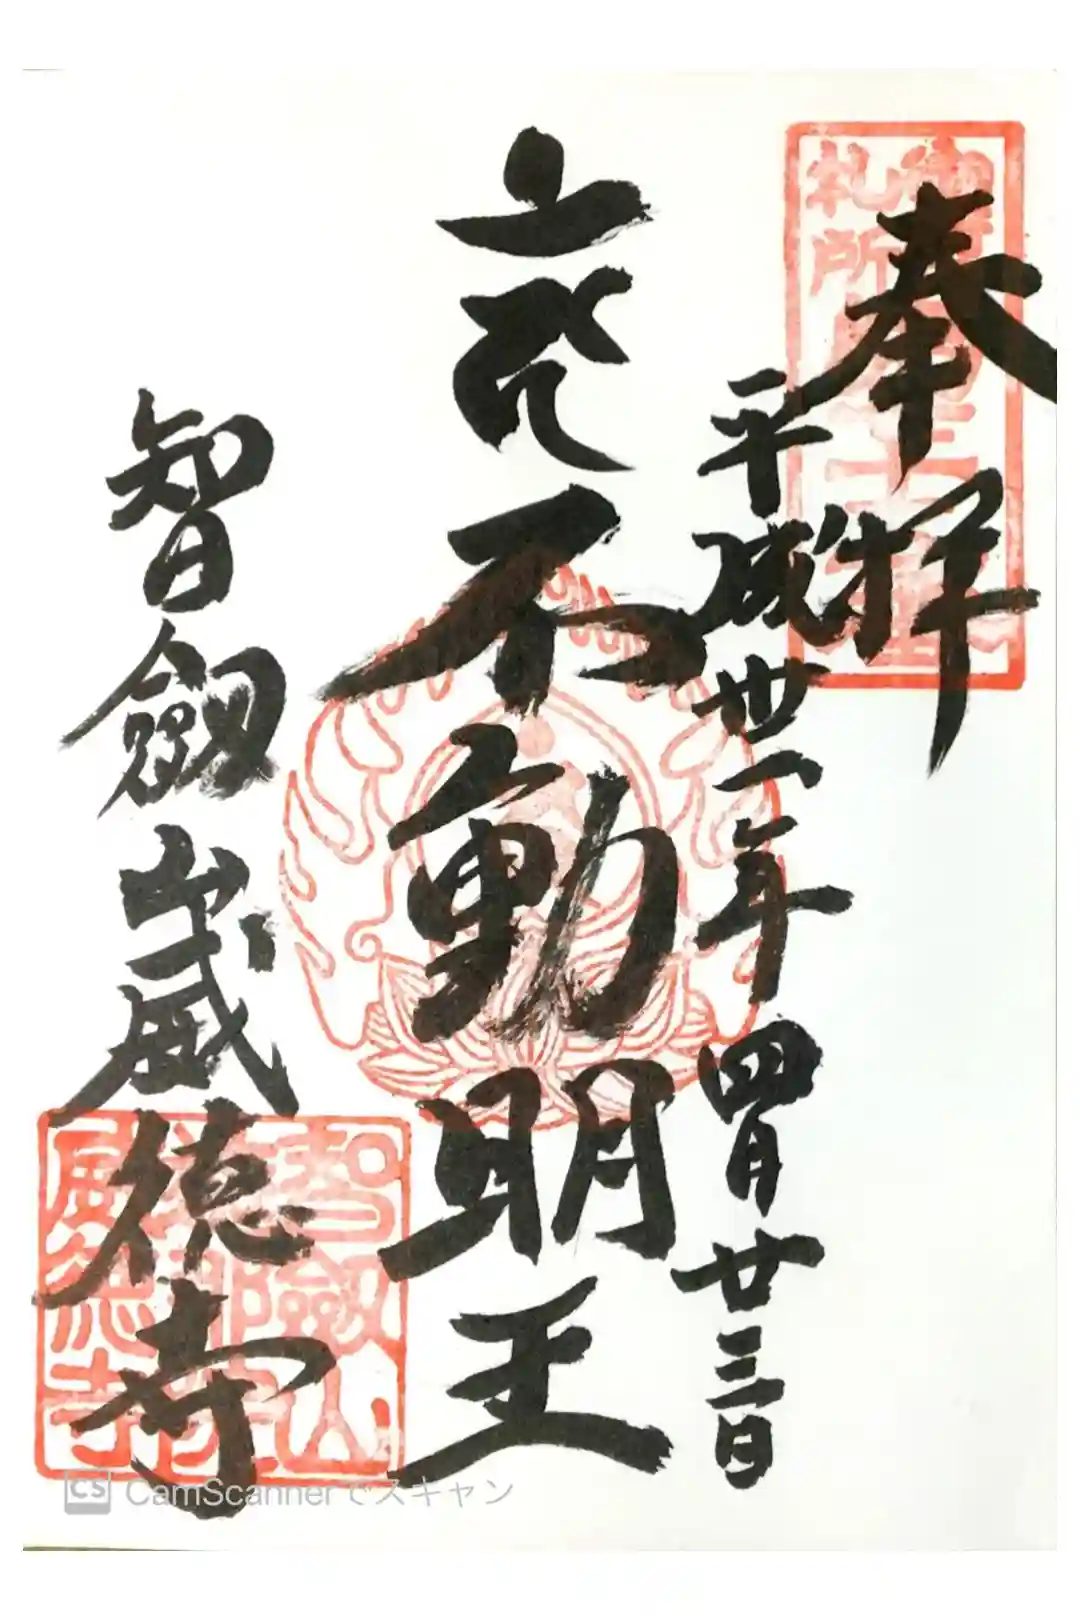 奉拝
平成丗一年四月廿三日
不動明王
智劔山威徳寺
智劔山
威徳寺
札所
CS CamScannerでスキャン